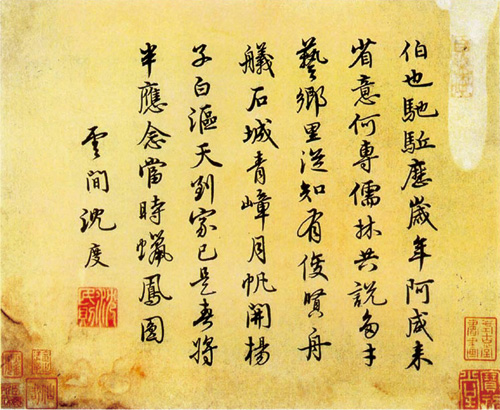 伯也馳駈應歲年阿咸来
省意何專儒林共說多才
藝鄉里從知有俊賢舟
艤石城青嶂月帆開楊
子白漚天到家已是春將
半應念當時蠟鳳圓
雲間沈度